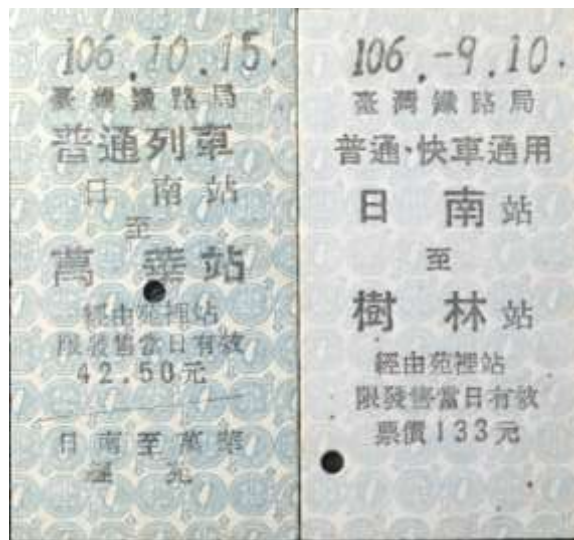 106.10.15.
臺灣鐵路局
普通列車
日南站
至
萬華站
經由苑裡站
限發售當日有效
42.50元
日南至萬華
經 苑
106.-9.10.
臺灣鐵路局
普通、快車通用
日南站
至
樹林站
經由苑裡站
限發售當日有效
票價133元